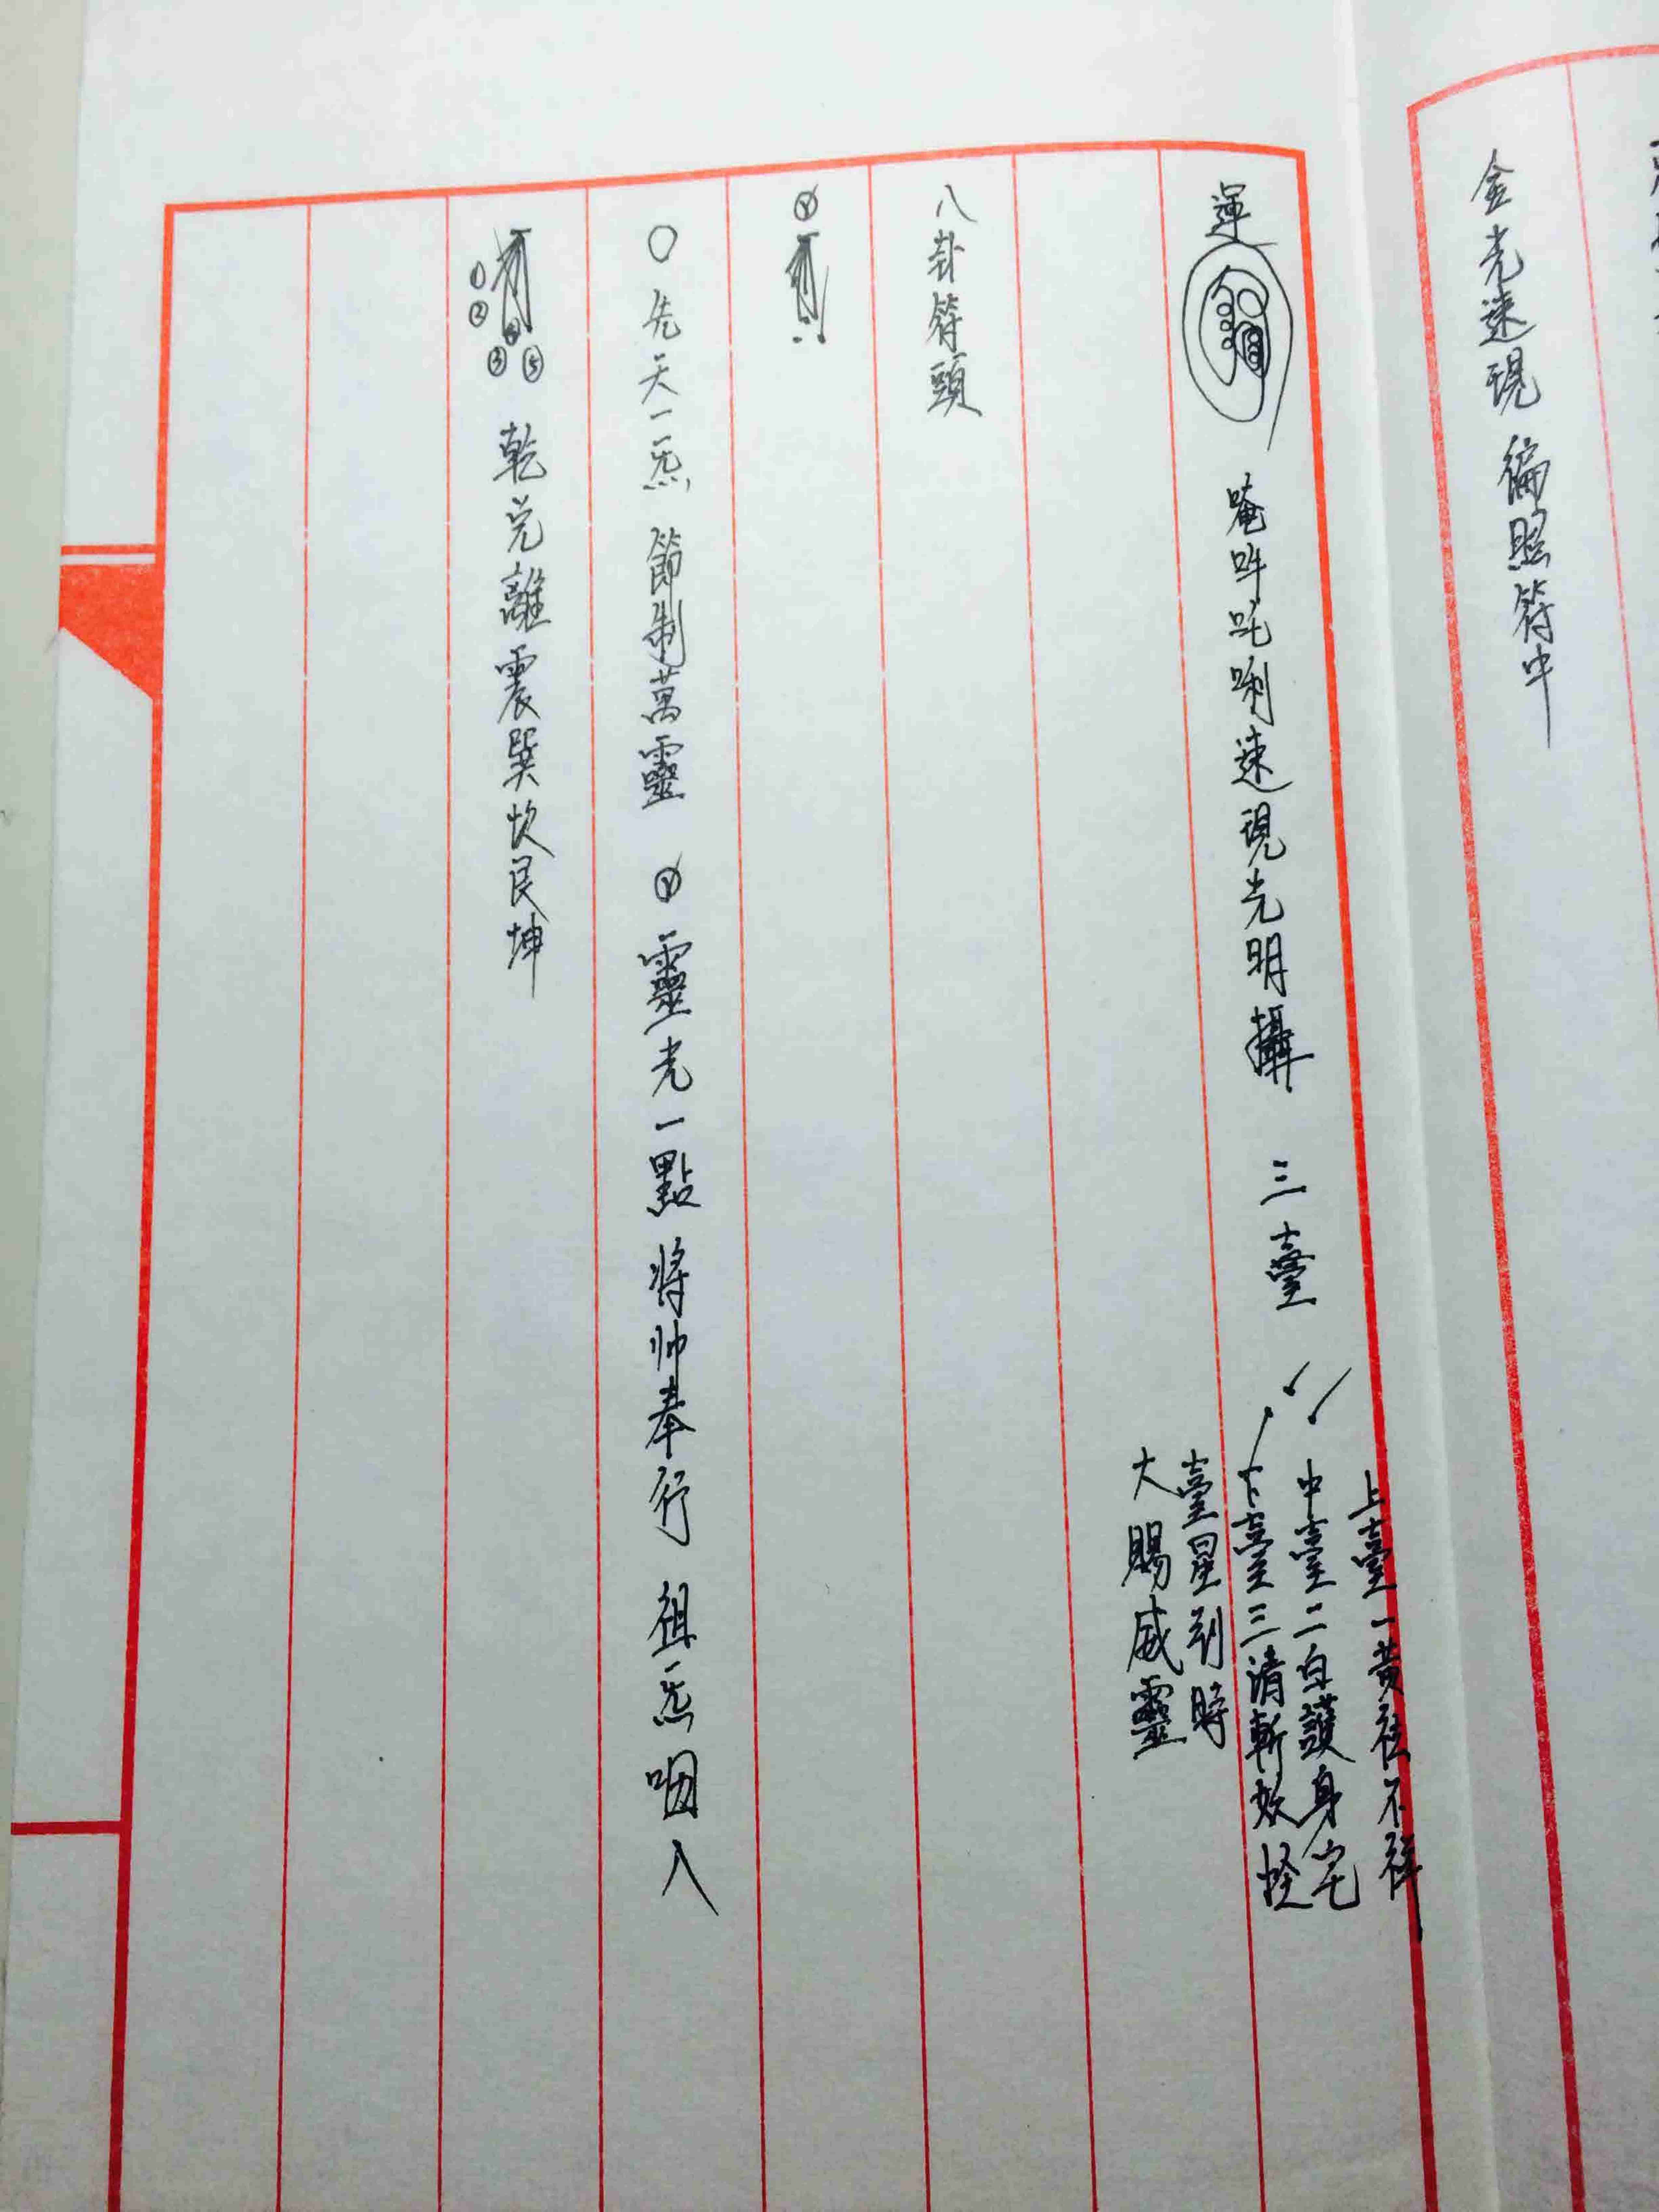 金光速現 徧照符中
運 唵吽吒唎速現光明攝 三臺
上臺一黃祛不祥
中臺二白護身宅
下臺三清斬妖怪
臺星到時
大賜威靈
八卦符頭
〇先天一炁 節制萬靈 靈光一點 將帥奉行 祖炁咽入
① ② ③ ④ ⑤ 乾兌離震巽坎艮坤